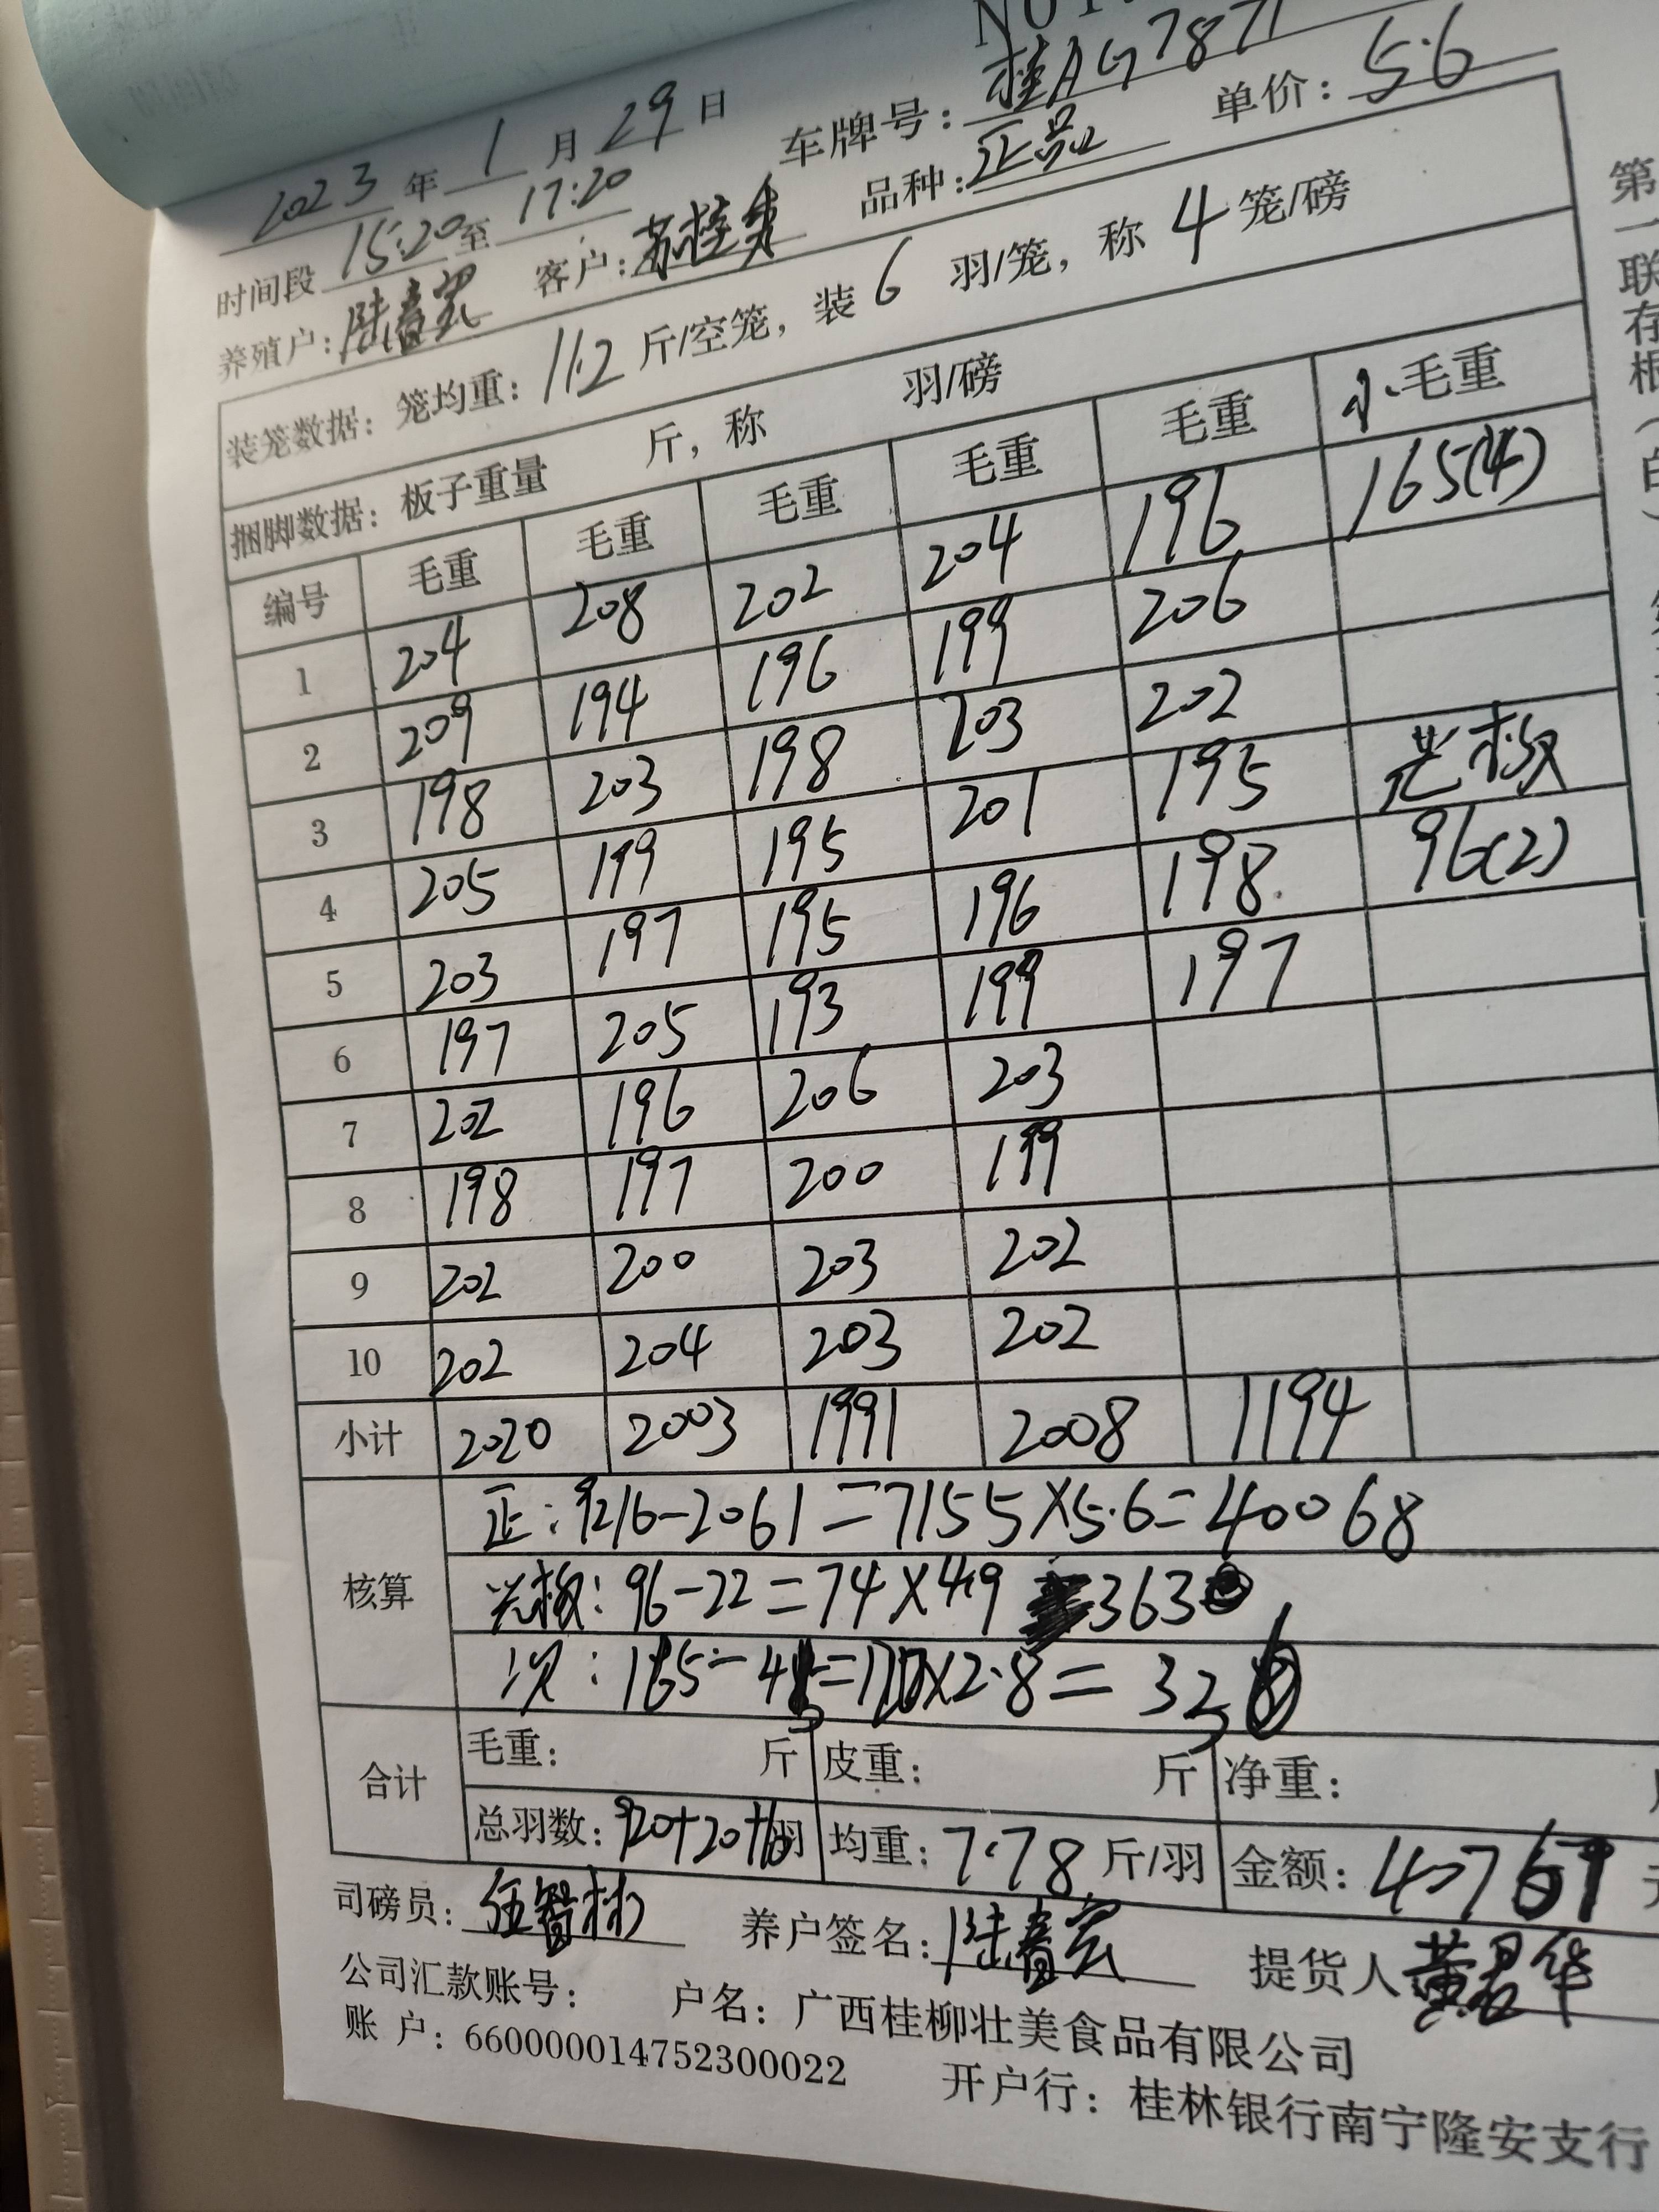 NO
2023 年 1 月 29 日 车牌号: 桂AG7871
时间段 15:20 至 17:20 品种: 正品 单价: 5.6
养殖户: 客户: 苏桂
装笼数据: 笼均重: 11.2 斤/空笼, 装 6 羽/笼, 称 4 笼/磅
捆脚数据: 板子重量 斤, 称 羽/磅
编号 毛重 毛重 毛重 毛重 毛重 小毛重
1 204 208 202 204 196 165(4)
2 209 194 196 199 206
3 198 203 198 203 202
4 205 199 195 201 195
5 203 197 195 196 198 96(2)
6 197 205 193 199 197
7 202 196 206 203
8 198 197 200 199
9 202 200 203 202
10 202 204 203 202
小计 2020 2003 1991 2008 1194
核算
正: 9216-2061=7155×5.6=40068
96-22=74×4.9 363
次: 165-45=120×2.8=336
合计 毛重: 斤 皮重: 斤 净重:
总羽数: 920+20+ 羽 均重: 7.78 斤/羽 金额: 40767
司磅员: 养户签名: 提货人
公司汇款账号: 户名: 广西桂柳壮美食品有限公司
账 户: 660000014752300022 开户行: 桂林银行南宁隆安支行
第一联存根(白)